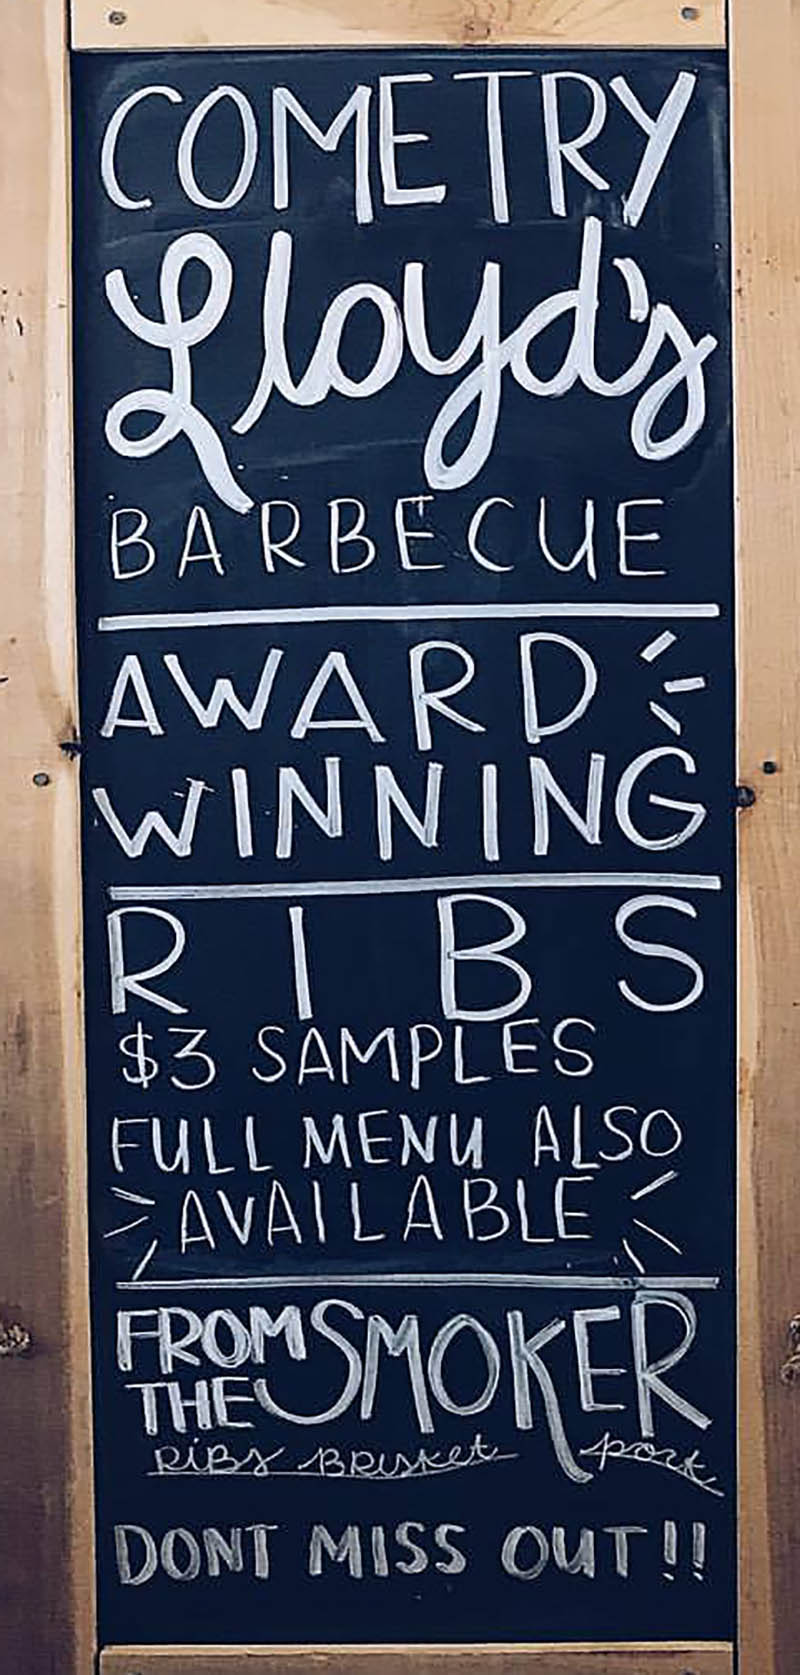 COME TRY
Lloyd's
BARBECUE
AWARD
WINNING
RIBS
$3 SAMPLES
FULL MENU ALSO
AVAILABLE
FROM THE SMOKER
RIBS BRISKET pork
DONT MISS OUT!!